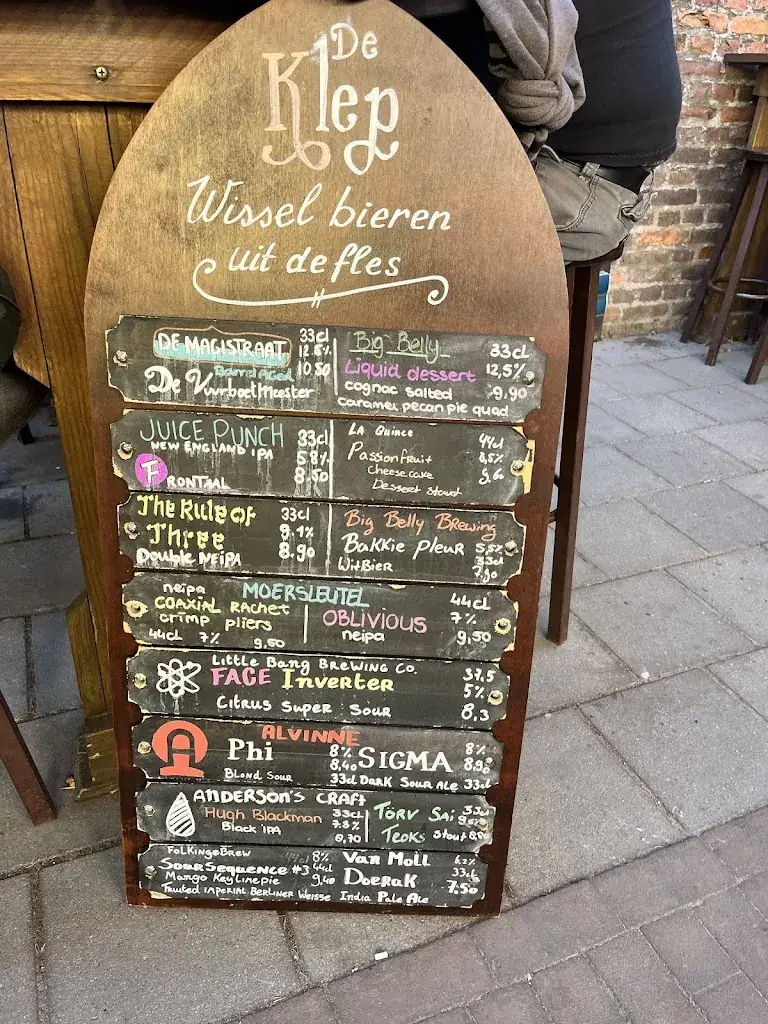 De
Klep
Wissel bieren
uit de fles
DE MAGISTRAAT 33cl
12.5%
Barrel Aged 10,50
De Vuurboetmeester
Big Belly 33cL
Liquid dessert 12,5%
cognac salted 9.90
caramel pecan pie quad
JUICE PUNCH 33cl
NEW ENGLAND IPA 5.8%
8.50
FRONTAAL
LA Quince 44cl
Passionfruit 8,5%
Cheesecake 9.60
Dessert stout
The Rule of 33cl
Three 9.1%
Double NEIPA 8.90
Big Belly Brewing
Bakkie Pleur 5,5%
WitBier 33cl
7.90
MOERSLEUTEL
neipa
COAXIAL RACHET
crimp pliers
44cl 7% 9,50
44cl
OBLIVIOUS 7%
neipa 9,50
Little Bang Brewing Co. 37.5
FACE Inverter 5%
Citrus Super Sour 8,3
ALVINNE
A
Phi 8%
8,40
Blond Sour 33cl
SIGMA 8%
8,90
Dark Sour Ale 33cl
ANDERSON'S CRAFT
Hugh Blackman 33cl
Black IPA 7.5%
8,70
Törv Sai 33cl
Teoks Stout
FoLKingeBrew 44cl 8%
SourSequence #3 44cl
Mango Keylimepie 9,40
Fruited imperial Berliner Weisse
Van Moll 6.2%
Doerak 33cl
7,50
India Pale Ale